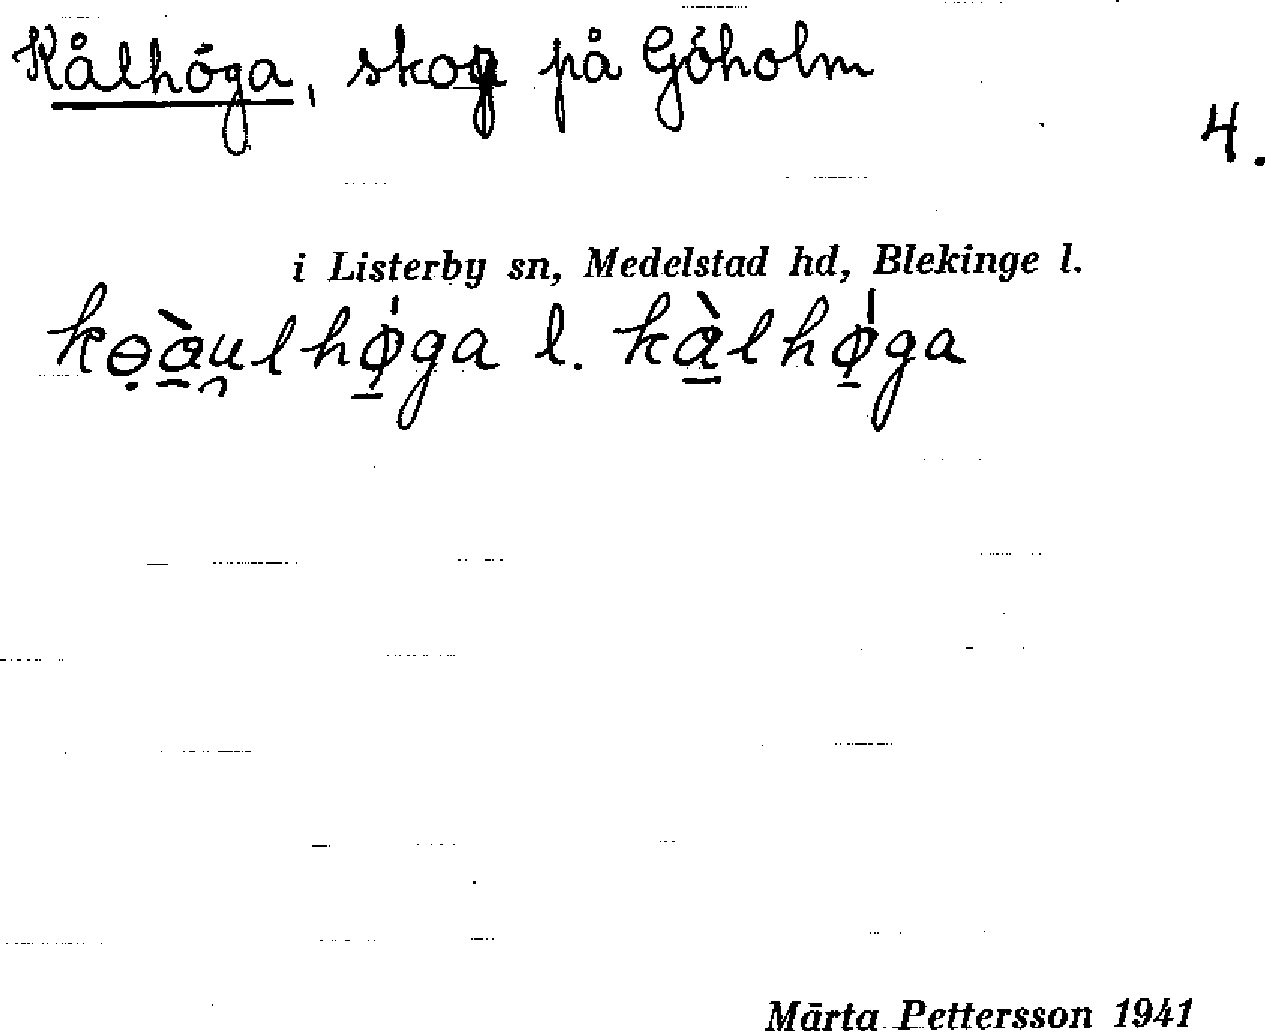 Kålhöga, skog på Göholm
4.
i Listerby sn, Medelstad hd, Blekinge l.
kọà̱u̯lhǿ̱ga l. kà̱lhǿ̱ga
Märta Pettersson 1941